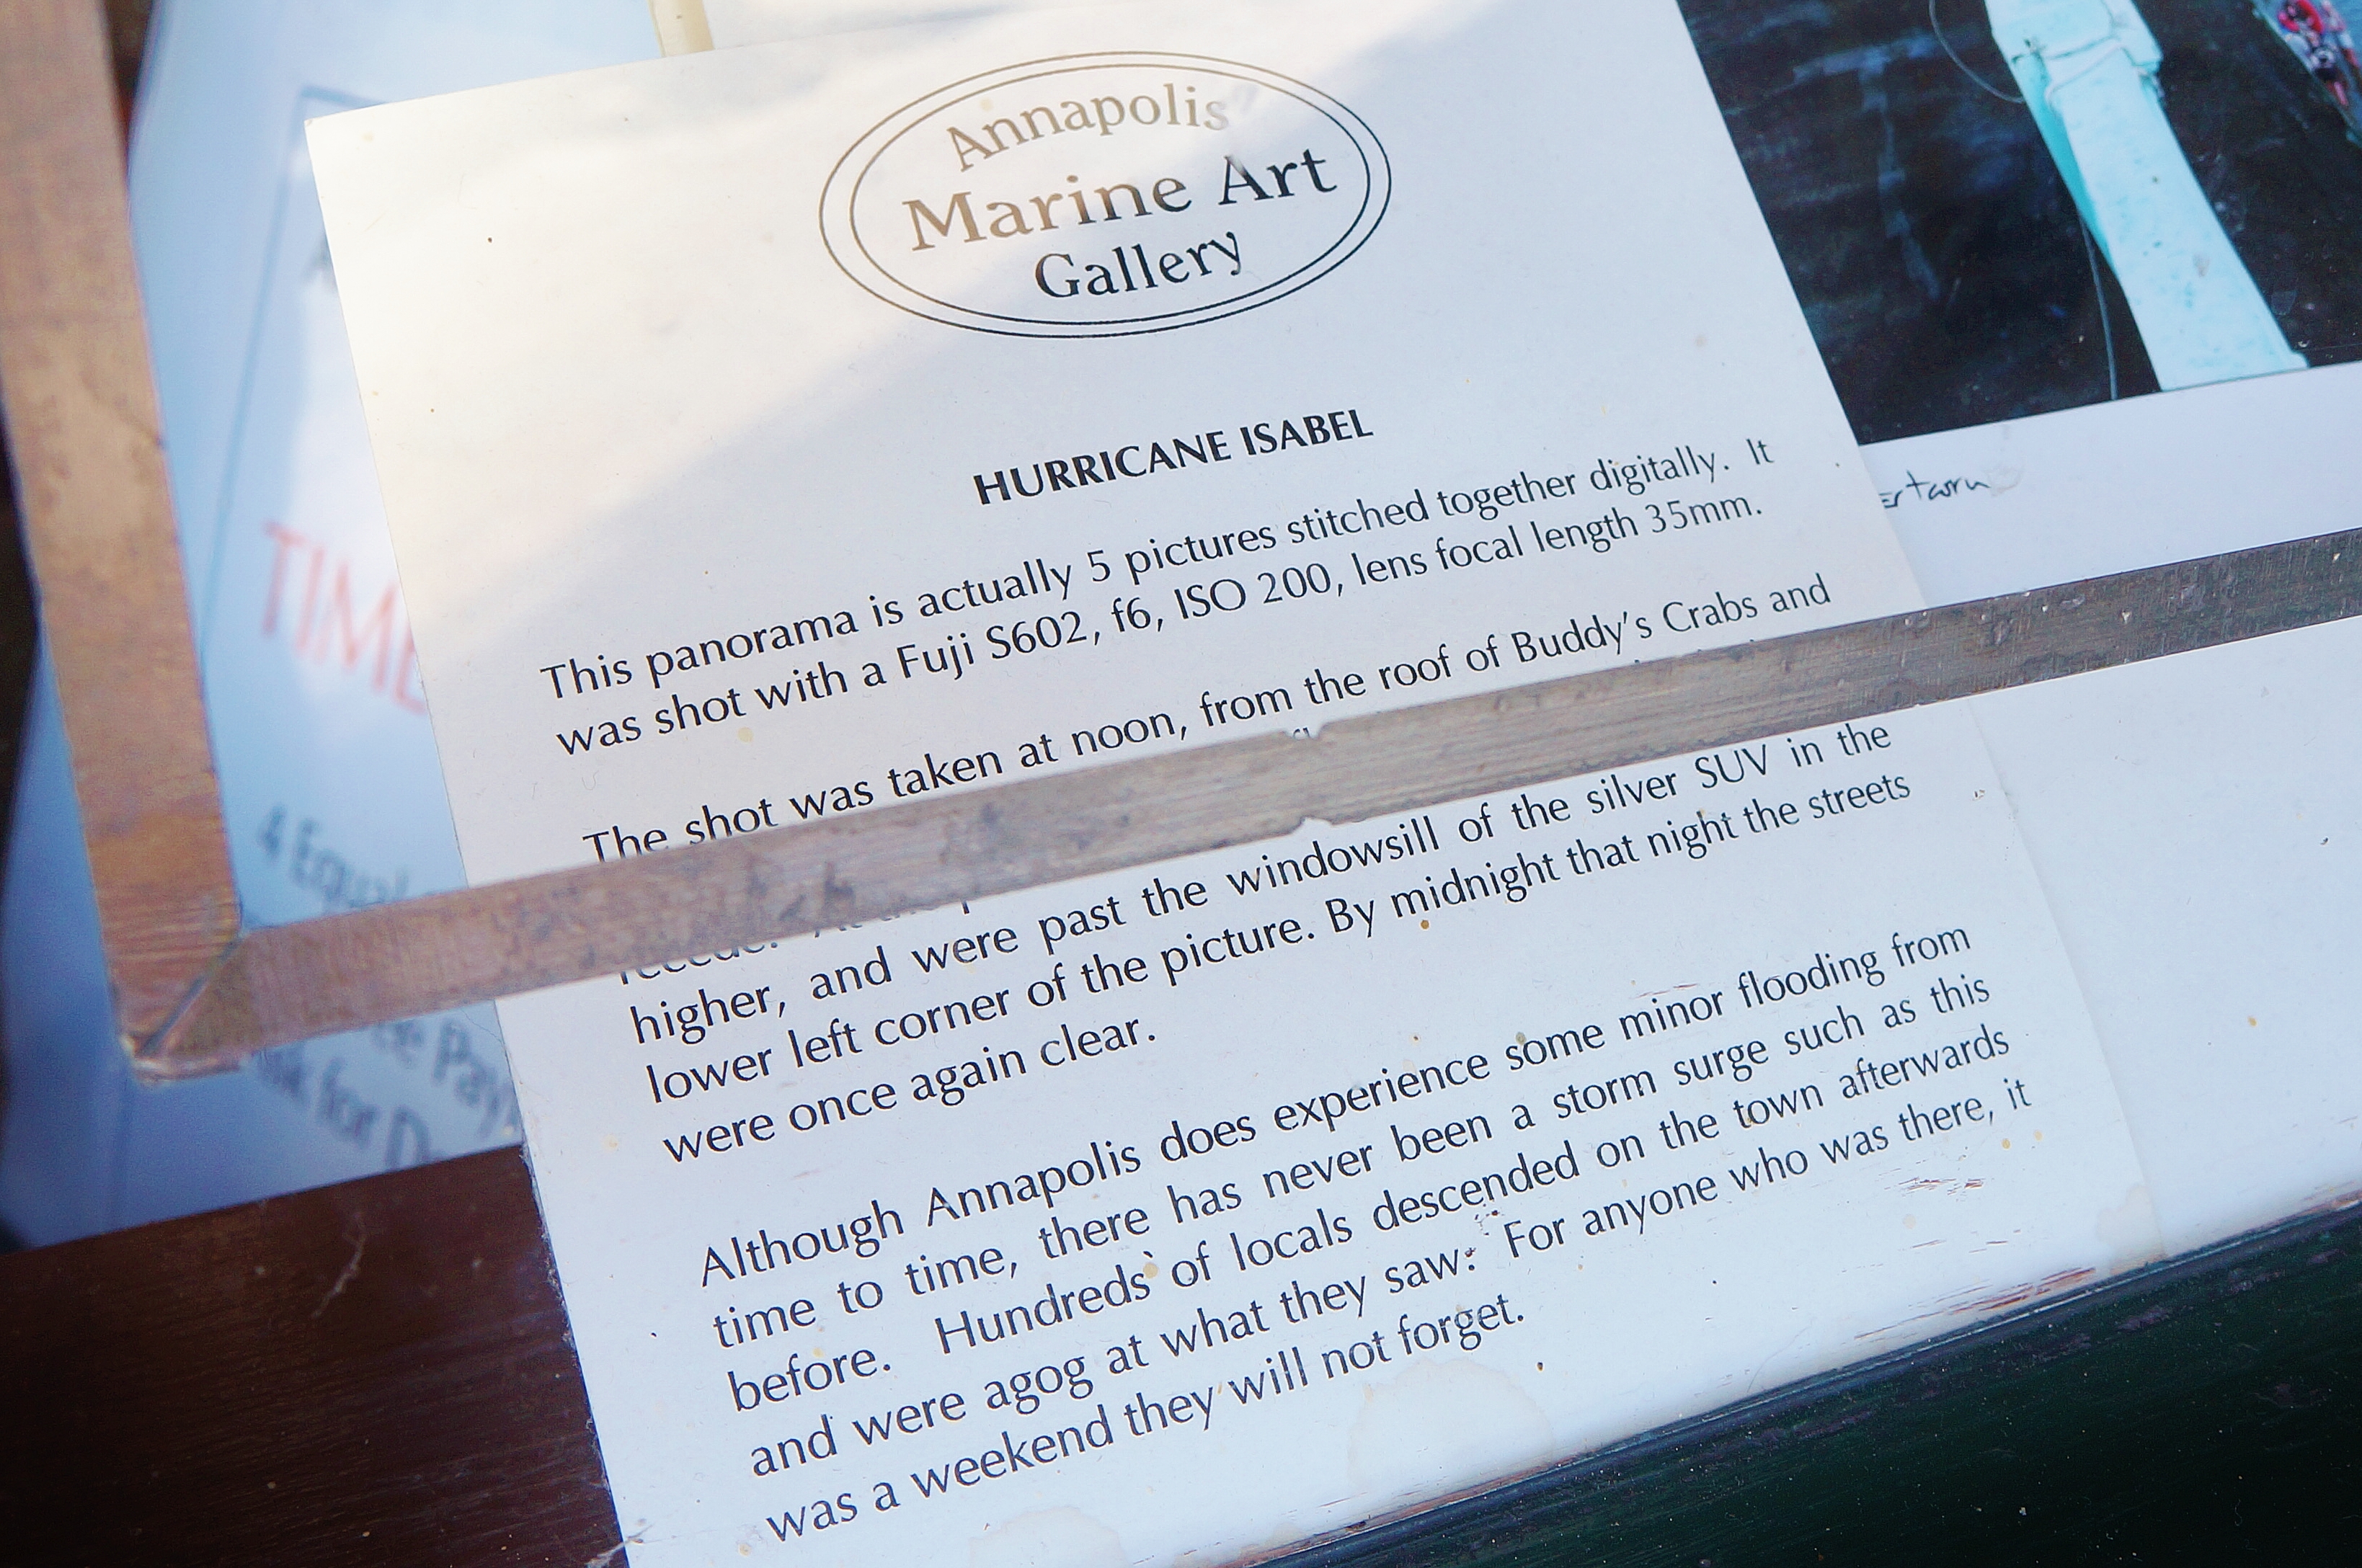 Annapolis
Marine Art
Gallery
HURRICANE ISABEL
This panorama is actually 5 pictures stitched together digitally. It
was shot with a Fuji S602, f6, ISO 200, lens focal length 35mm.
The shot was taken at noon, from the roof of Buddy's Crabs and
higher, and were past the windowsill of the silver SUV in the
lower left corner of the picture. By midnight that night the streets
were once again clear.
Although Annapolis does experience some minor flooding from
time to time, there has never been a storm surge such as this
before. Hundreds of locals descended on the town afterwards
and were agog at what they saw. For anyone who was there, it
was a weekend they will not forget.
TIME
4 Equal
Pay
for D